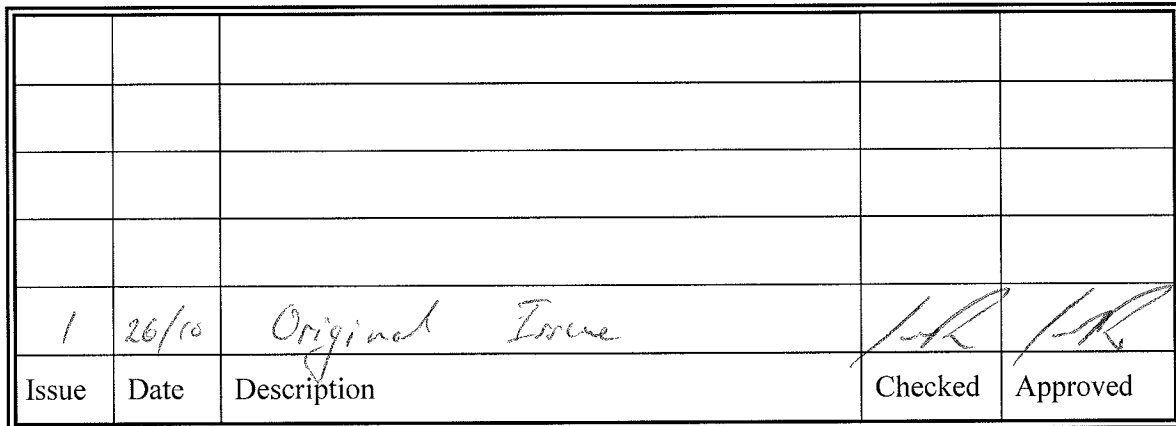 1 26/10 Original Issue
Issue Date Description Checked Approved